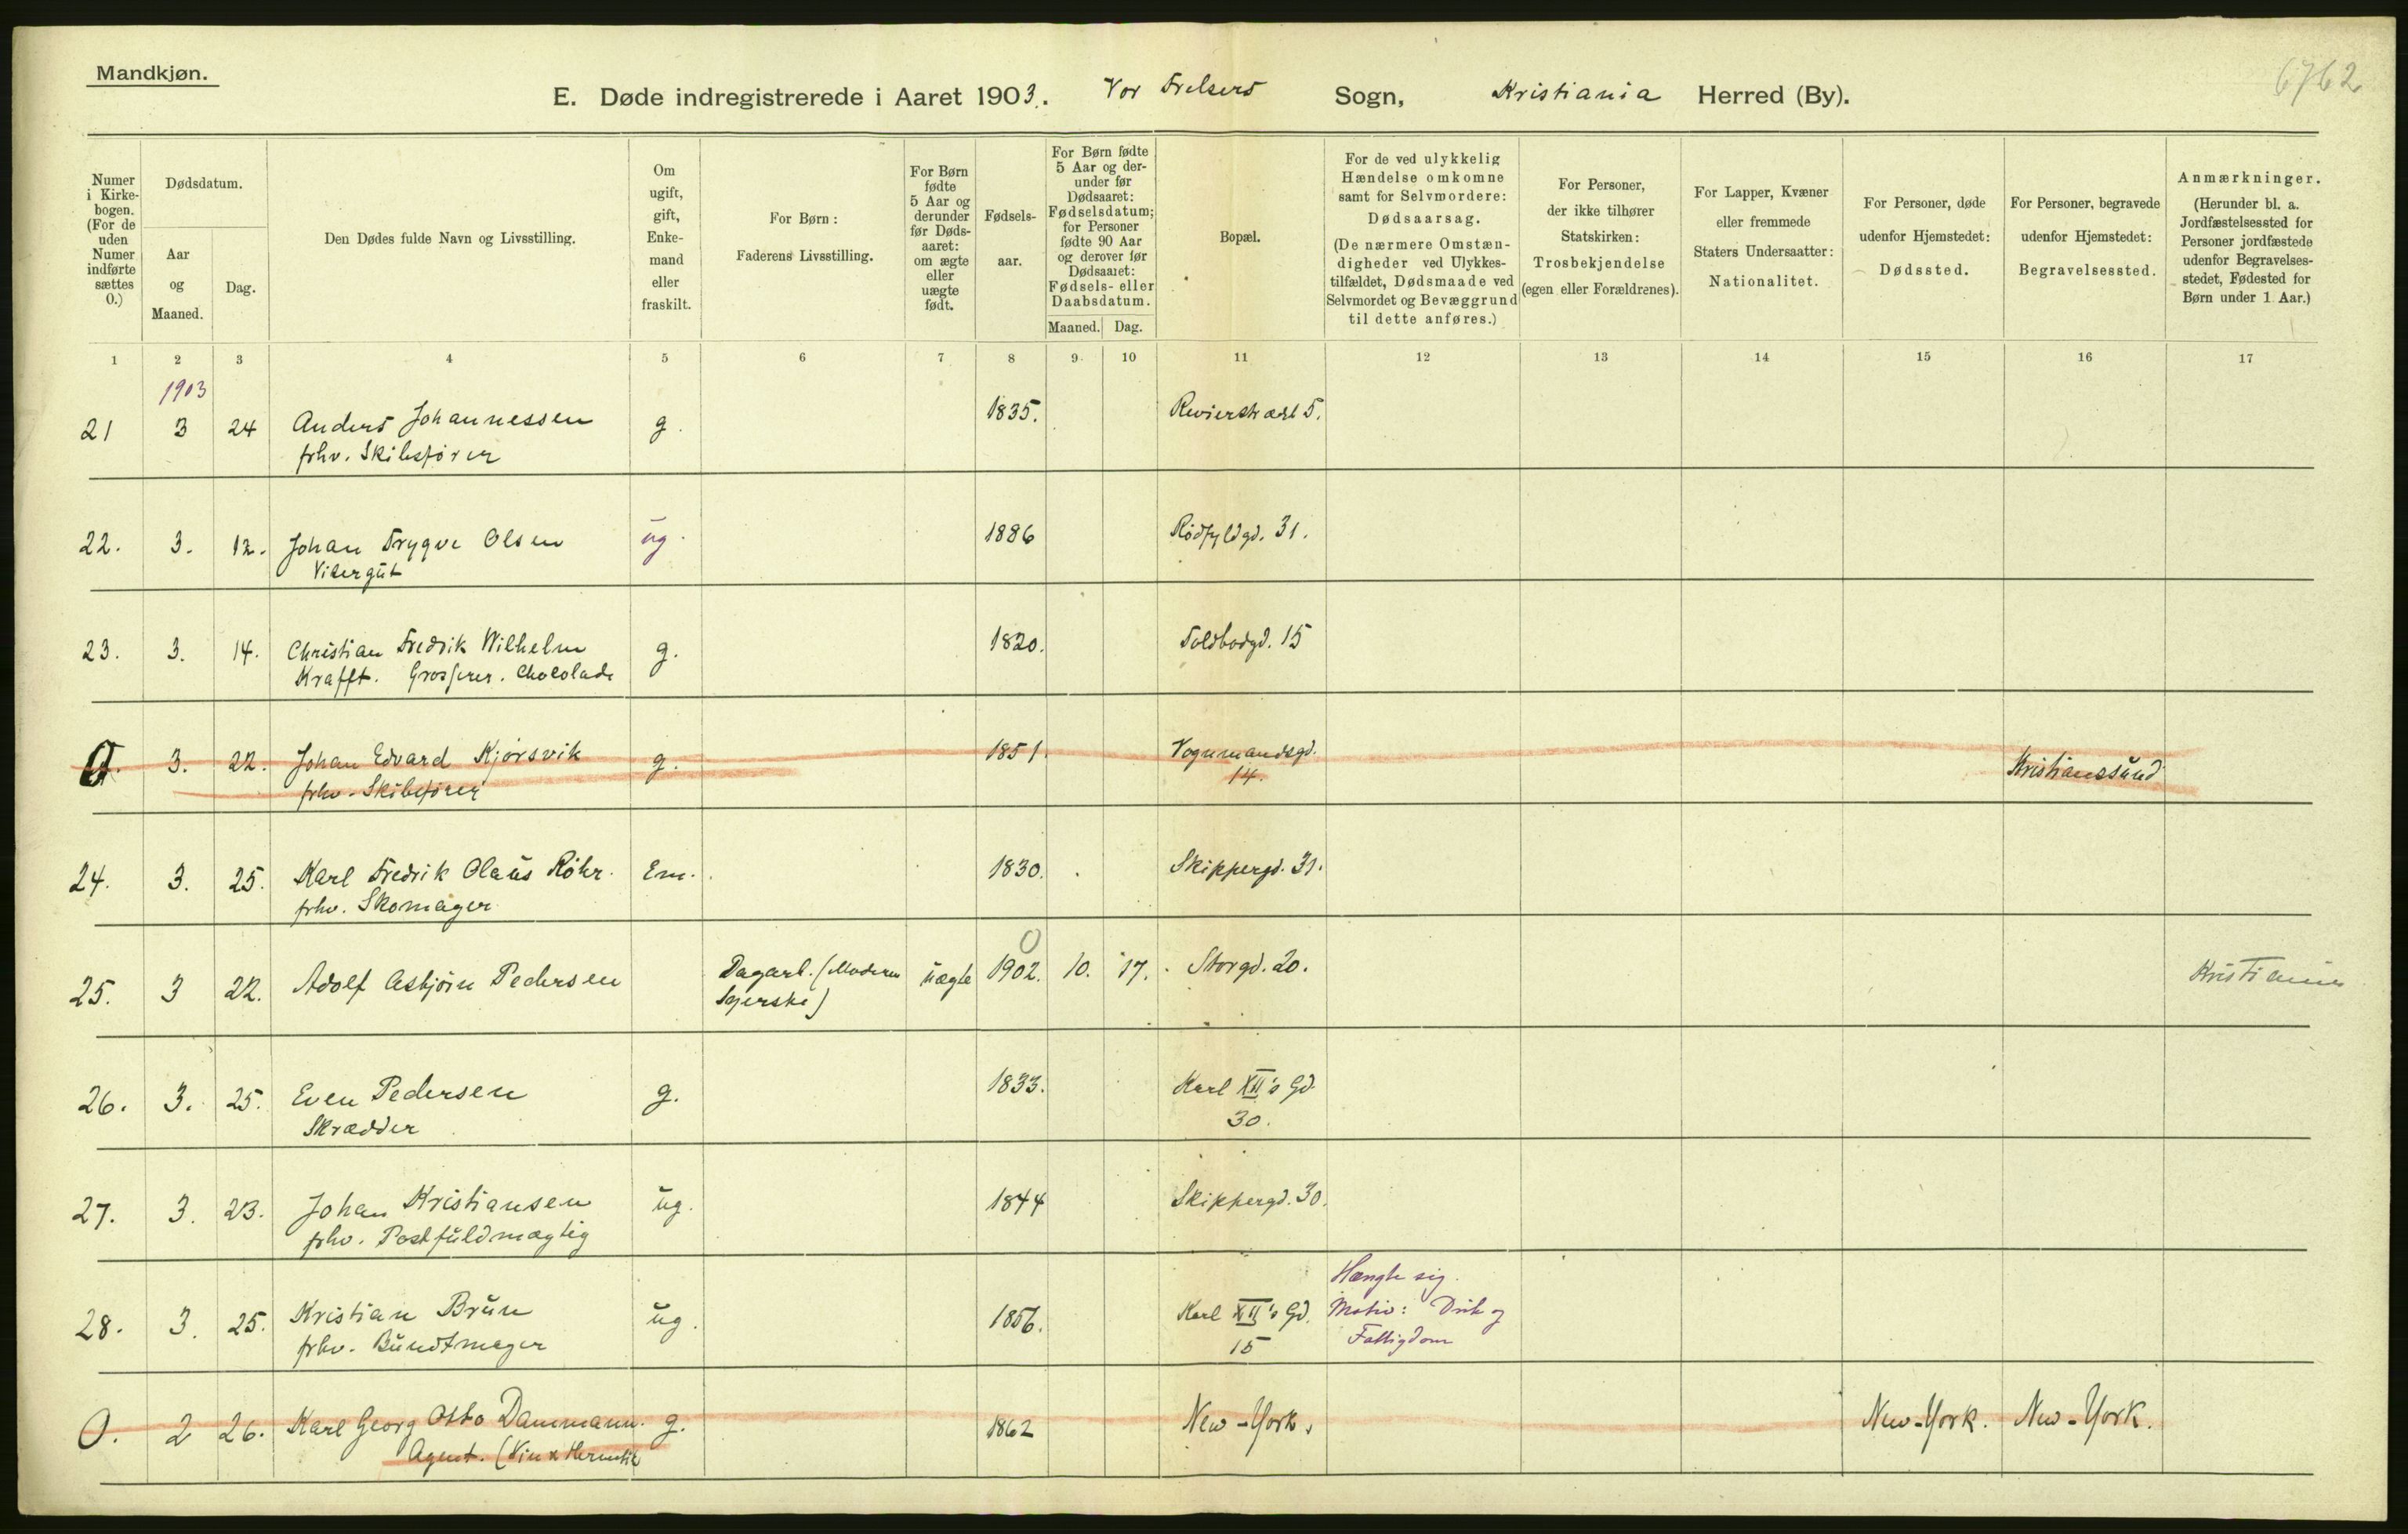 Mandkjøn.
6762
E. Døde indregistrerede i Aaret 1903. Vor Frelsers Sogn, Kristiania Herred (By).
Numer i Kirke-bogen. (For de uden Numer indførte sættes 0.)
Dødsdatum.
Aar og Maaned.
Dag.
Den Dødes fulde Navn og Livsstilling.
Om ugift, gift, Enke-mand eller fraskilt.
For Børn:
Faderens Livsstilling.
For Børn fødte 5 Aar og derunder før Døds-aaret: om ægte eller uægte født.
Fødsels-aar.
For Børn fødte 5 Aar og der-under før Dødsaaret: Fødselsdatum; for Personer fødte 90 Aar og derover før Dødsaaret: Fødsels- eller Daabsdatum.
Maaned. Dag.
Bopæl.
For de ved ulykkelig Hændelse omkomne samt for Selvmordere: Dødsaarsag.
(De nærmere Omstæn-digheder ved Ulykkes-tilfældet, Dødsmaade ved Selvmordet og Bevæggrund til dette anføres.)
For Personer, der ikke tilhører Statskirken: Trosbekjendelse (egen eller Forældrenes).
For Lapper, Kvæner eller fremmede Staters Undersaatter: Nationalitet.
For Personer, døde udenfor Hjemstedet: Dødssted.
For Personer, begravede udenfor Hjemstedet: Begravelsessted.
Anmærkninger. (Herunder bl. a. Jordfæstelsessted for Personer jordfæstede udenfor Begravelses-stedet, Fødested for Børn under 1 Aar.)
1 2 3 4 5 6 7 8 9 10 11 12 13 14 15 16 17
1903
21 3 24 Anders Johannessen g. 1835. Revierstræd 5.
frhv. Skibsfører
22. 3. 12. Johan Trygve Olsen ug. 1886 Rödfyldgd. 31.
Visergut
23. 3. 14. Christian Fredrik Wilhelm g. 1820. Toldbodgd. 15
Krafft. Grosserer. Chocolade
0. 3. 22. Johan Edvard Kjörsvik g. 1851. Vognmandsgd. Kristianssund
frhv. Skibsfører 14.
24. 3. 25. Karl Fredrik Olaus Röhr. Em. 1830. Skippergd. 31.
frhv. Skomager
0
25. 3 22. Adolf Asbjörn Pedersen Dagarb. (Moderen uægte 1902. 10. 17. Storgd. 20. Kristiania
Syerske)
26. 3. 25. Even Pedersen g. 1833. Karl XII's Gd.
Skrædder 30.
27. 3. 23. Johan Kristiansen ug. 1844 Skippergd. 30.
frhv. Postfuldmægtig
Hængte sig.
28. 3. 25. Kristian Brun ug. 1856. Karl XII's Gd. Motiv: Drik og
frhv. Bundtmager 15 Fattigdom
0. 2 26. Karl Georg Otto Dammann. g. 1862 New-York. New-York. New-York.
Agent. (Vin & Hermetik